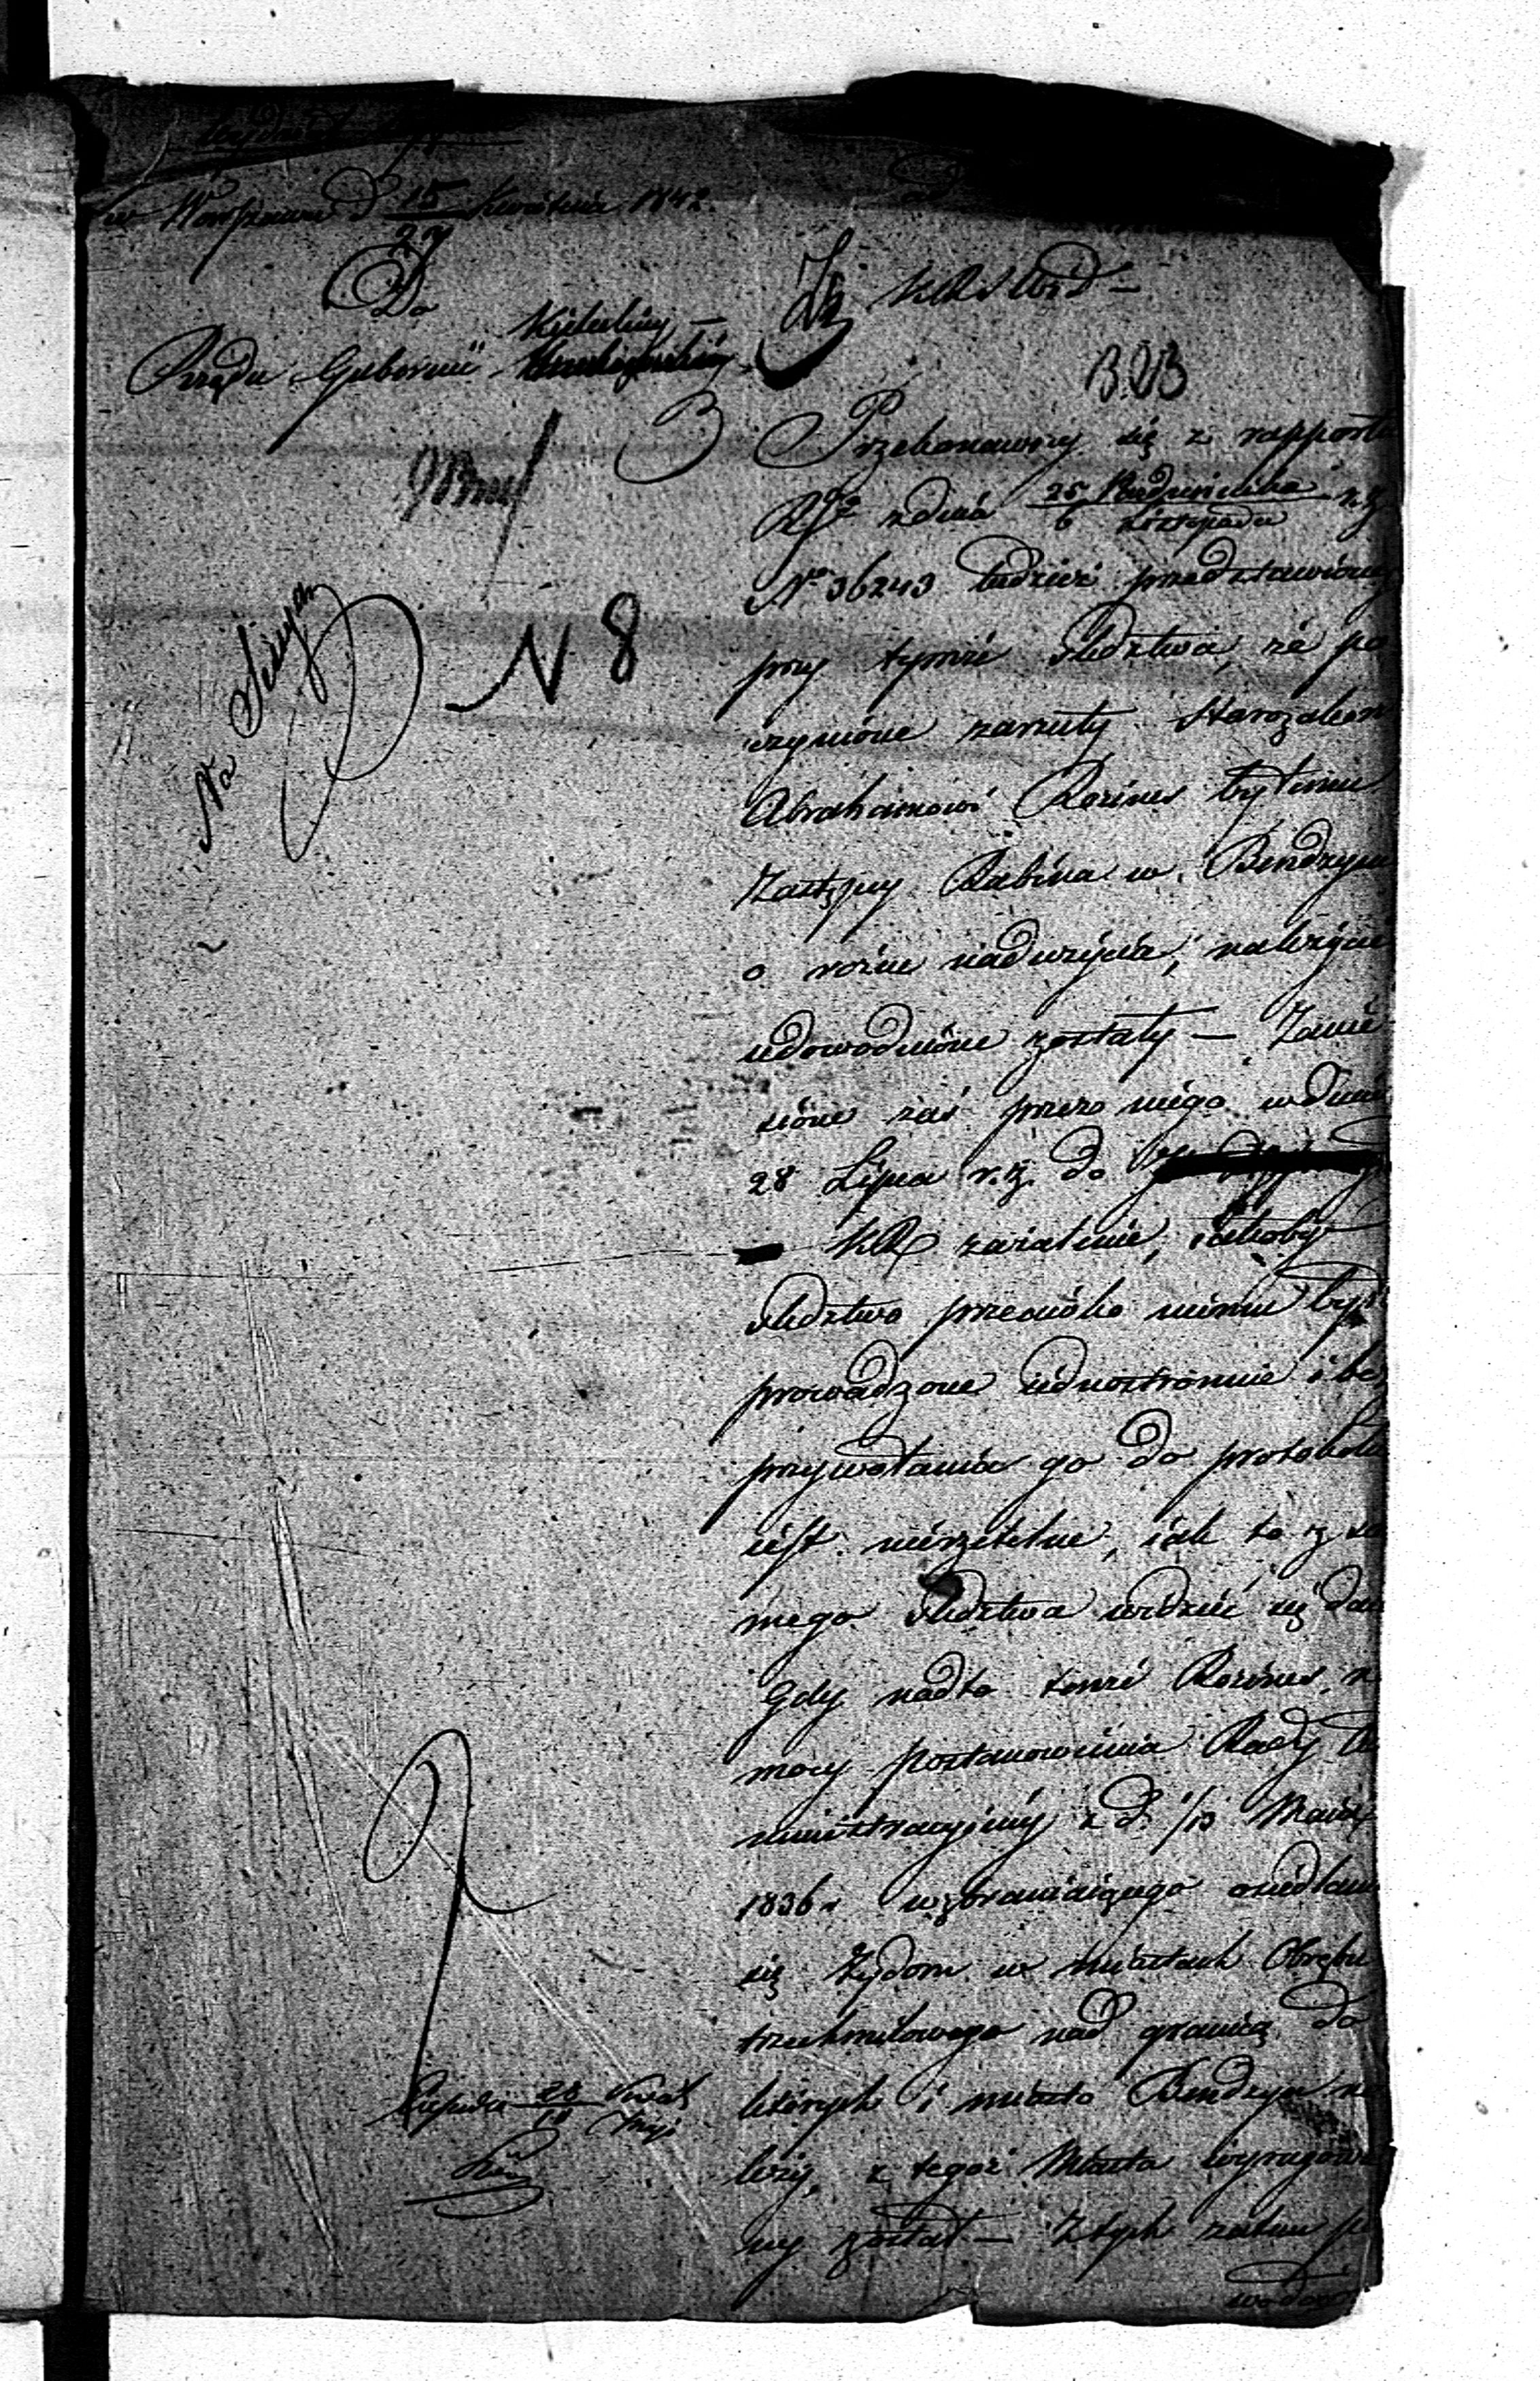 w Warszawie d 15/27 Kwietnia 1842.
Do
Kieleckiey —
Rządu Gubernii
KRSWiD —
Przekonawszy się z rapportu
Rz. z dnia 25 Października / 6 Listopada r. z
N° 36243 tudzież przedstawione
przy tymże śledztwa, że po
czynione zarzuty Starozakon
Abrahamowi Rozines byłemu
Zastępcy Rabina w Bendzynie
o rożne nadużycia, należycie
udowodnione zostały — Zanie
sione zaś przez niego w dniu
28 Lipca r. z. do
KR zażalenie, iakoby
śledztwo przeciwko niemu było
prowadzone iednostronnie i bez
przywołania go do protokołu
iest nierzetelne, iak to z sa
mego śledztwa widzieć się daie
Gdy nadto tenże Rozines, na
mocy postanowienia Rady Ad
ministracyjnéy z d. 1/13 Maia
1836 r wzbraniaiącego osiedlania
się Żydom w Miastach Obrębu
trzechmilowego nad granicą do
których i miasto Bendzyn na
leży, z tegoż Miasta wyrugowa
ny został — Z tych zatem po
wodów
Na Sessyą
N 8
28